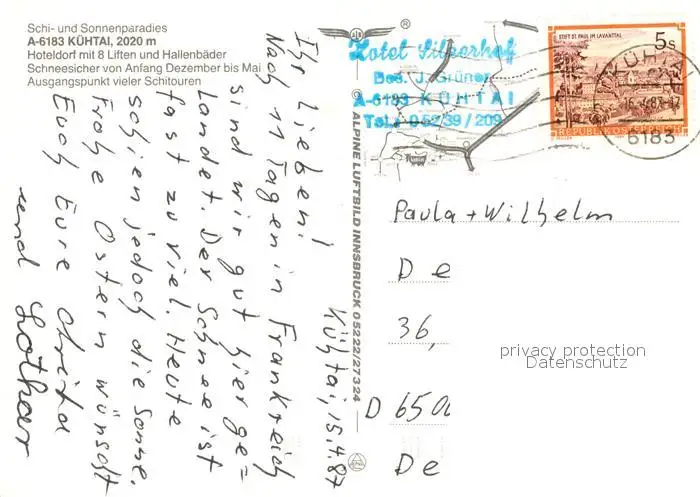 Schi- und Sonnenparadies
A-6183 KÜHTAI, 2020 m
Hoteldorf mit 8 Liften und Hallenbäder
Schneesicher von Anfang Dezember bis Mai
Ausgangspunkt vieler Schitouren
Kühtai, 15.4.87
Ihr Lieben!
Nach 11 Tagen in Frankreich
sind wir gut hier ge=
landet. Der Schnee ist
fast zu viel. Heute
schien jedoch die Sonne.
Frohe Ostern wünscht
Euch Eure
und Lothar
ALPINE LUFTBILD INNSBRUCK 05222/27324
®
Hotel Silzerhof
Bes. J. Grüner
A-6183 KÜHTAI
Tel. 05239/209
STIFT ST. PAUL IM LAVANTTAL
5s
REPUBLIK ÖSTERREICH
6183
Paula + Wilhelm
De
36,
D 6500
De
privacy protection
Datenschutz